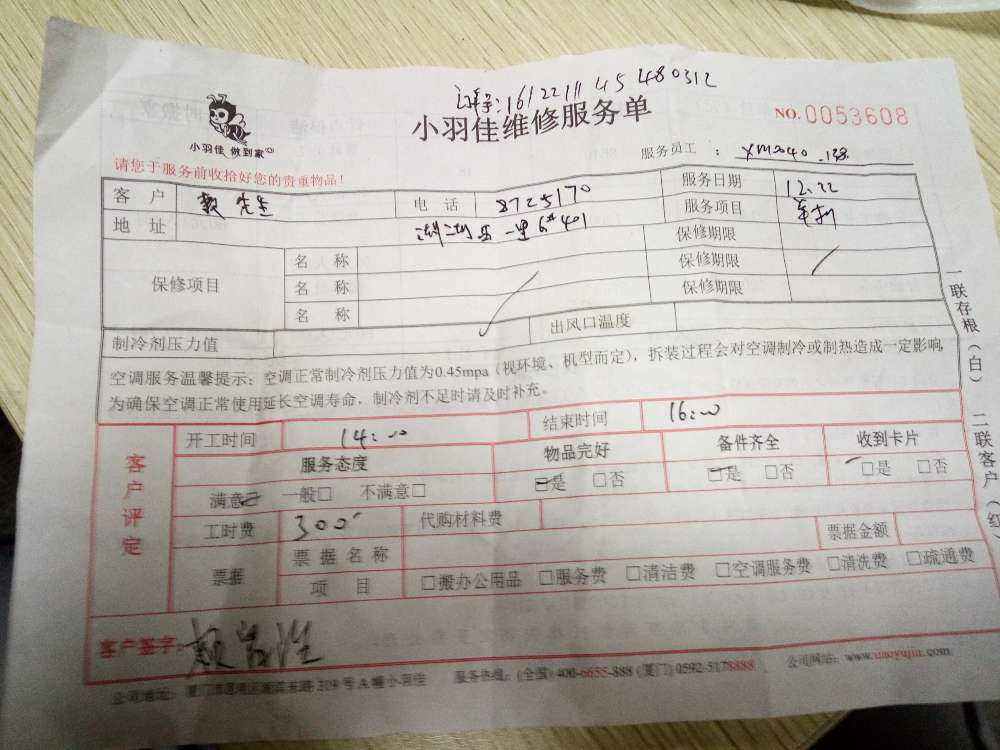 16122111 45 480312
小羽佳 做到家
小羽佳维修服务单
NO.0053608
请您于服务前收拾好您的贵重物品！
服务员工：
客户 先生 电话 8725170 服务日期 12.22
地址 一里6#401 服务项目
保修项目 名称 保修期限
名称 保修期限
名称 保修期限
制冷剂压力值 出风口温度
空调服务温馨提示：空调正常制冷剂压力值为0.45mpa（视环境、机型而定），拆装过程会对空调制冷或制热造成一定影响
为确保空调正常使用延长空调寿命，制冷剂不足时请及时补充。
客户评定
开工时间 14:00 结束时间 16:00
服务态度 物品完好 备件齐全 收到卡片
满意□ 一般□ 不满意□ □是 □否 □是 □否 □是 □否
工时费 300 代购材料费
票据 票据名称 票据金额
项目 □搬办公用品 □服务费 □清洁费 □空调服务费 □清洗费 □疏通费
客户签字：
公司地址： 309号A幢小羽佳 服务热线：(全国) 400-6655-888 (厦门) 0592-5178888 公司网站：www.xiaoyujia.com
一联存根（白） 二联客户（红